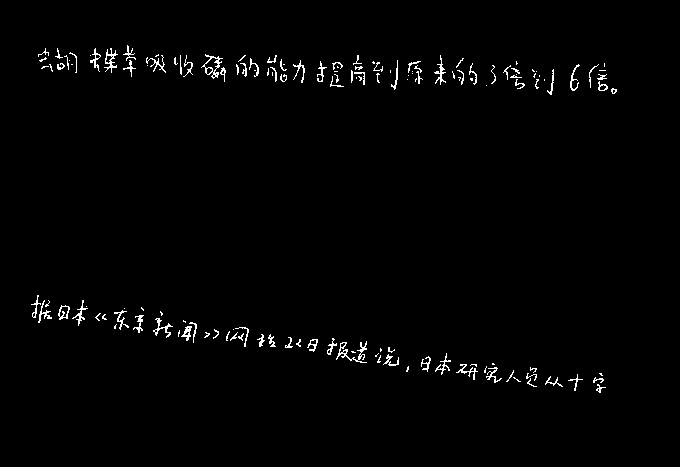 蝴蝶草吸收磷的能力提高到原来的3倍到6倍。
据日本《东京新闻》网站22日报道说,日本研究人员从十字